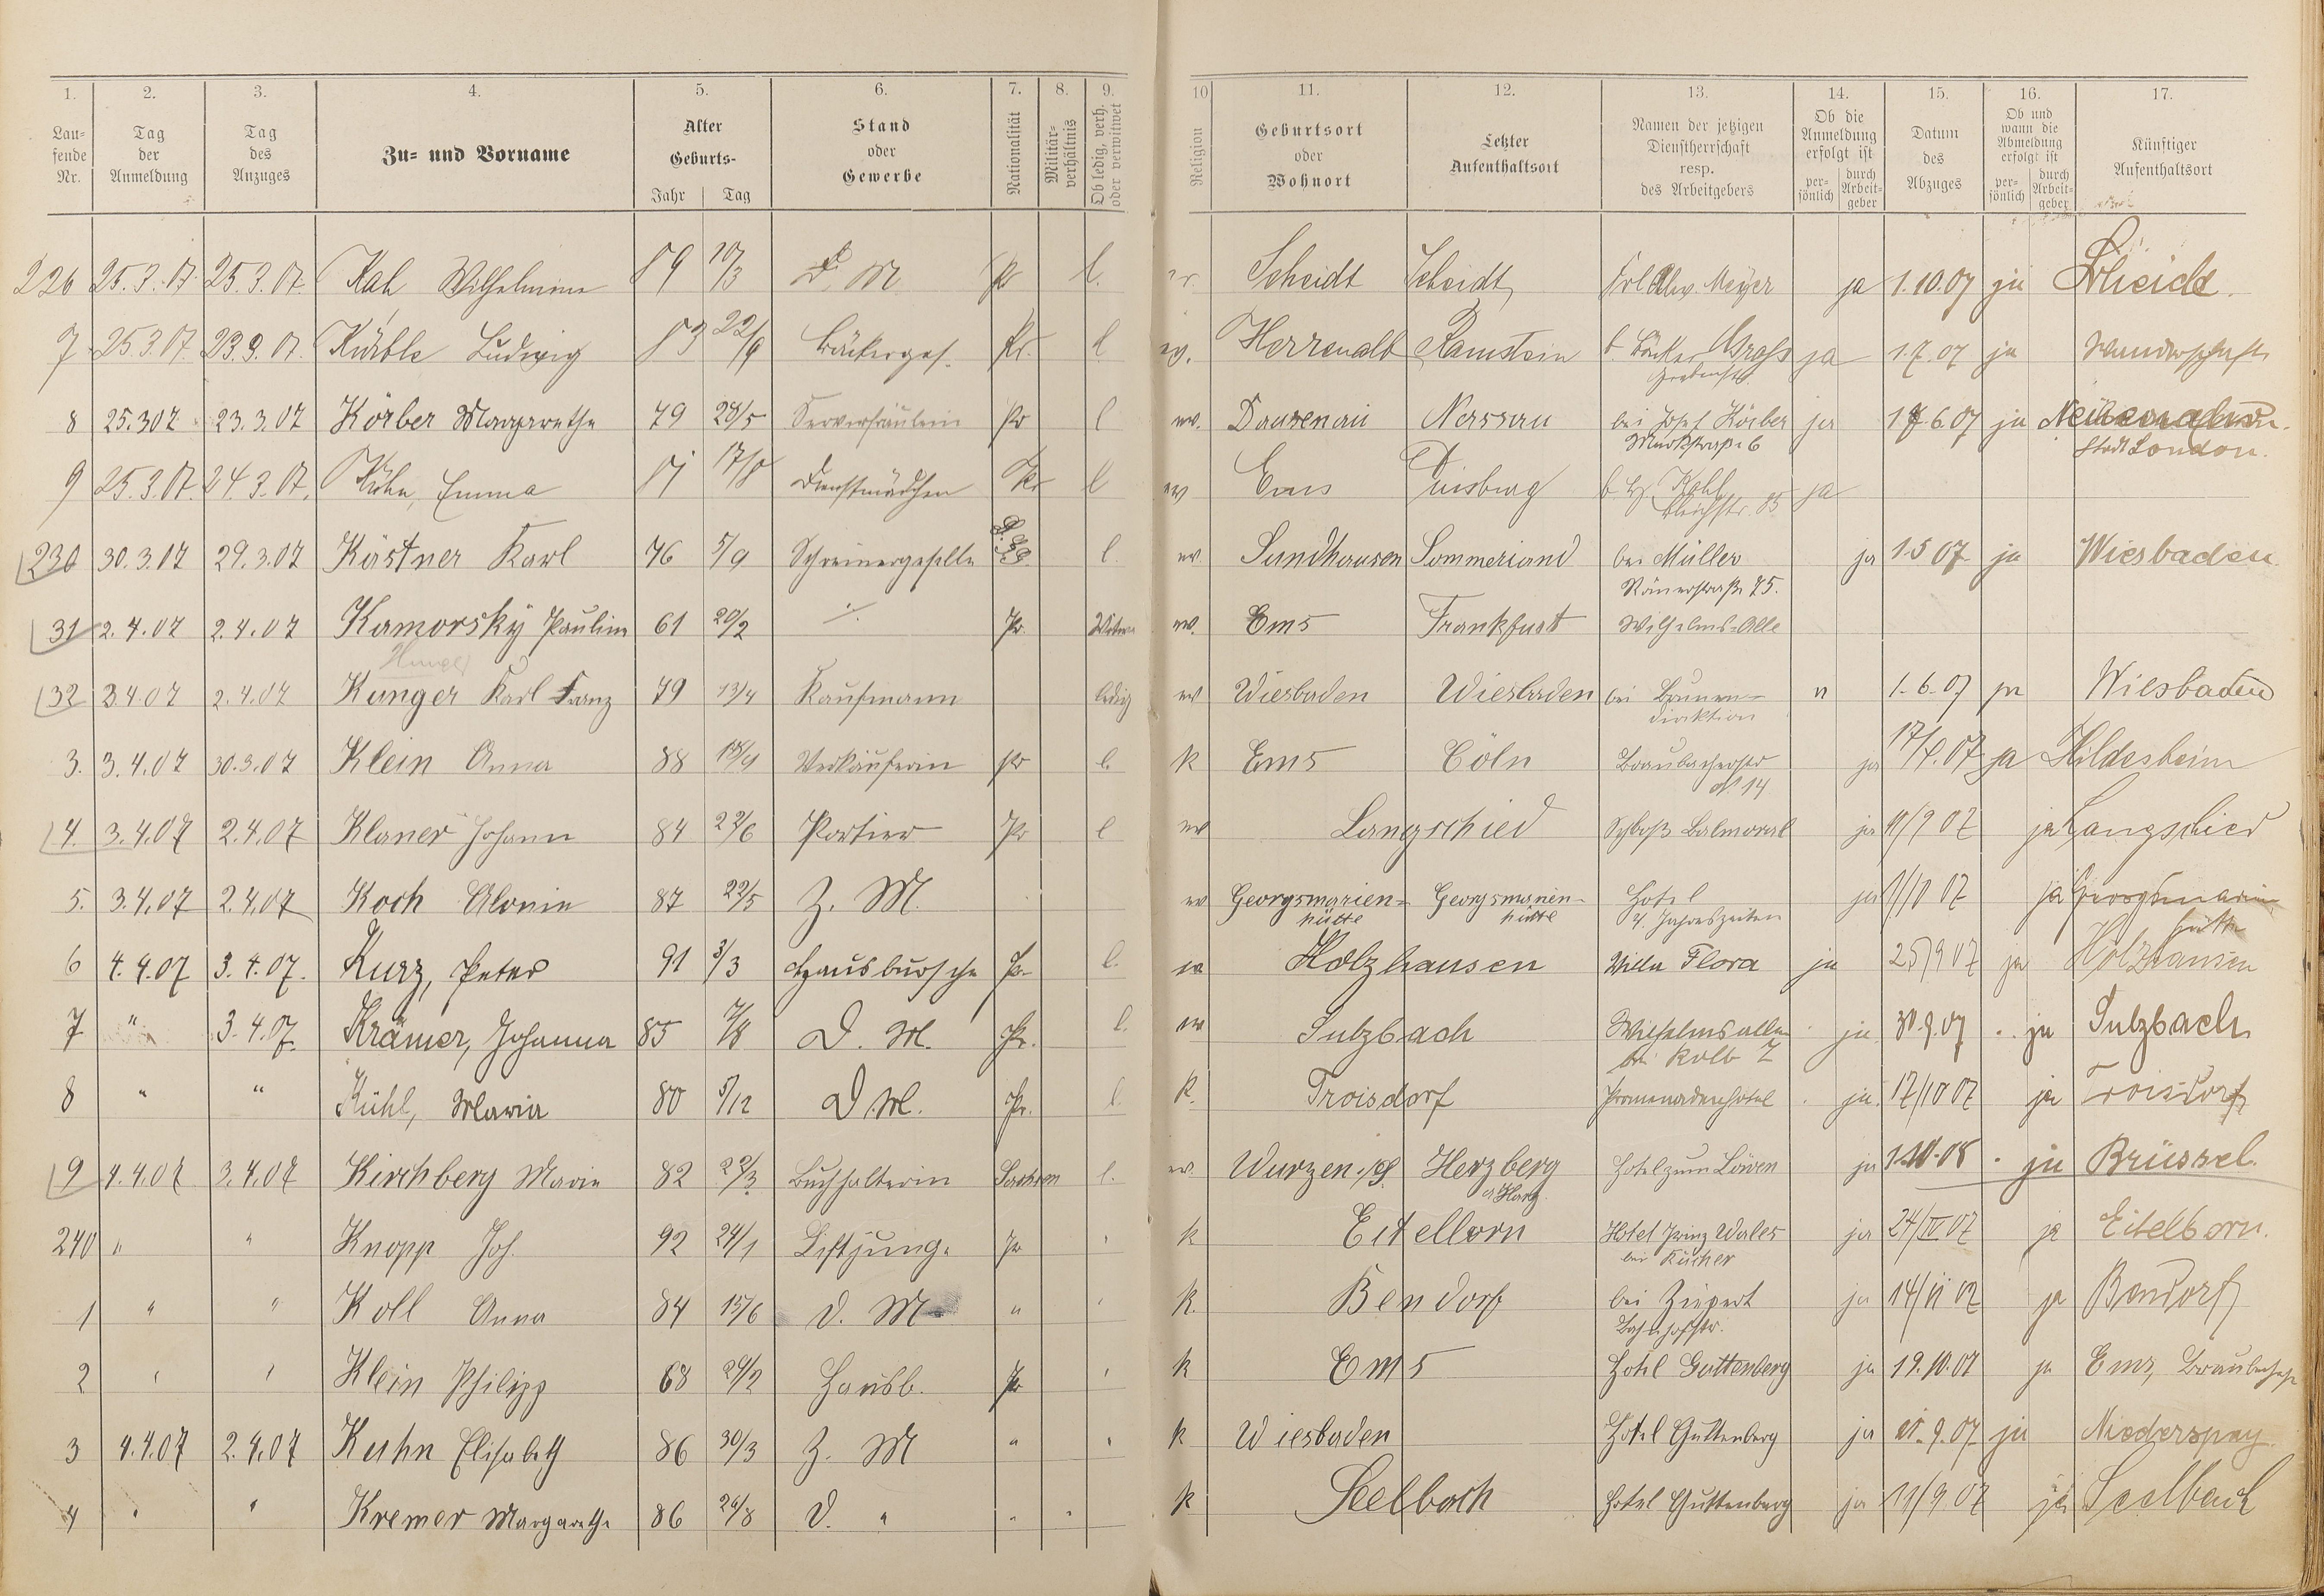 1. 2. 3. 4. 5. 6. 7. 8. 9. 10 11. 12. 13. 14. 15. 16. 17.
Lau-fende Nr. Tag der Anmeldung Tag des Anzuges Zu- und Vorname Alter Geburts- Jahr Tag Stand oder Gewerbe Nationalität Militär-verhältnis Ob ledig, verh. oder verwitwet Religion Geburtsort oder Wohnort Letzter Aufenthaltsort Namen der jetzigen Dienstherrschaft resp. des Arbeitgebers Ob die Anmeldung erfolgt ist per-sönlich durch Arbeit-geber Datum des Abzuges Ob und wann die Abmeldung erfolgt ist per-sönlich durch Arbeit-geber Künftiger Aufenthaltsort
226 25.3.07. 25.3.07. Kah Wilhelmine 89 10/3 D. M. Pr l. Scheidt Scheidt Meyer ja 1.10.07 ja
7 25.3.07 23.3.07. Ludwig 83 22/9 Bäckerges. Pr. l ev. Herrenalb Ramstein b. Bäcker Gross ja 1.7.07 ja Wanderschaft
Grabenstr.
8 25.3.07 23.3.07 Körber Margarethe 79 28/5 Servierfräulein Pr l ev. Dausenau Nassau bei Josef Körber ja 17.6.07 ja
Marktstraße 6 Stadt London.
9 25.3.07. 24.3.07. Kühn, Emma 81 17/8 Dienstmädchen Pr l ev Ems Duisburg Kohl ja
Bleichstr. 35
230 30.3.07 29.3.07 Kästner Karl 76 5/9 Schreinergeselle l. ev. Sundhausen Sommeriand bei Müller ja 1.5 07 ja Wiesbaden
Römerstraße 75.
31 2.4.07 2.4.07 Kamorsky Paulin 61 20/2 Pr. Witwe ev. Ems Frankfurt Wilhelms-Alle
32 3.4.07 2.4.07 Kunger Karl Franz 79 13/4 Kaufmann ledig ev Wiesbaden Wiesbaden bei Brunnen- 1.6.07 ja Wiesbaden
direktion
3. 3.4.07 30.3.07 Klein Anna 88 18/9 Verkäuferin Pr l. k Ems Cöln Braubacherstr ja 17/4.07 ja Hildesheim
N. 14
4. 3.4.07 2.4.07 Klaner Johann 84 22/6 Portier Pr l ev Langschied Schloß Balmoral ja 11/9 07 ja Langschied
5. 3.4.07 2.4.07 Koch 87 22/5 Z. M. ev Georgsmarien- Georgsmarien- Hotel ja 1/10 07 ja Georgsmarien
hütte hütte 4. Jahreszeiten hütte
6 4.4.07 3.4.07. Kurz, Peter 91 3/3 Hausbursche Pr. l. Holzhausen Villa Flora ja 25/9 07 ja Holzhausen
7 " 3.4.07. Krämer, Johanna 85 7/8 D. M. Pr. l. ev Sulzbach Wilhelmsallee ja 30.9.07 ja Sulzbach
bei Kolb
8 " " Kühl, Maria 80 5/12 D M. Pr. l. K. Troisdorf Promenadenhotel ja 17/10 07 ja Troisdorf
9 4.4.07 3.4.07 Kirchberg Marie 82 22/3 Buchhalterin Sachsen l. ev. Wurzen Herzberg Hotel zum Löwen ja 1.10.08 ja Brüssel.
a Harz
240 " " Knopp Joh. 92 24/1 Liftjunge Pr " k Eitelborn Hotel Prinz Wales ja 24/IV 07 ja Eitelborn.
bei Kücher
1 " " Koll Anna 84 15/6 D. M " " K. Bendorf bei ja 14/11 07 ja Bendorf
Bahnhofstr.
2 " " Klein Philipp 68 29/2 Hausb. Pr " k Ems Hotel Guttenberg ja 19.10.07 ja Ems,
3 4.4.07 2.4.07 Kuhn Elisabeth 86 30/3 Z. M " " k Wiesbaden Hotel Guttenberg ja 9.07 ja Niederspay
4 " " Kremer Margarethe 86 24/8 D. " " " k Seelbach Hotel Guttenberg ja 11/9 07 ja Seelbach